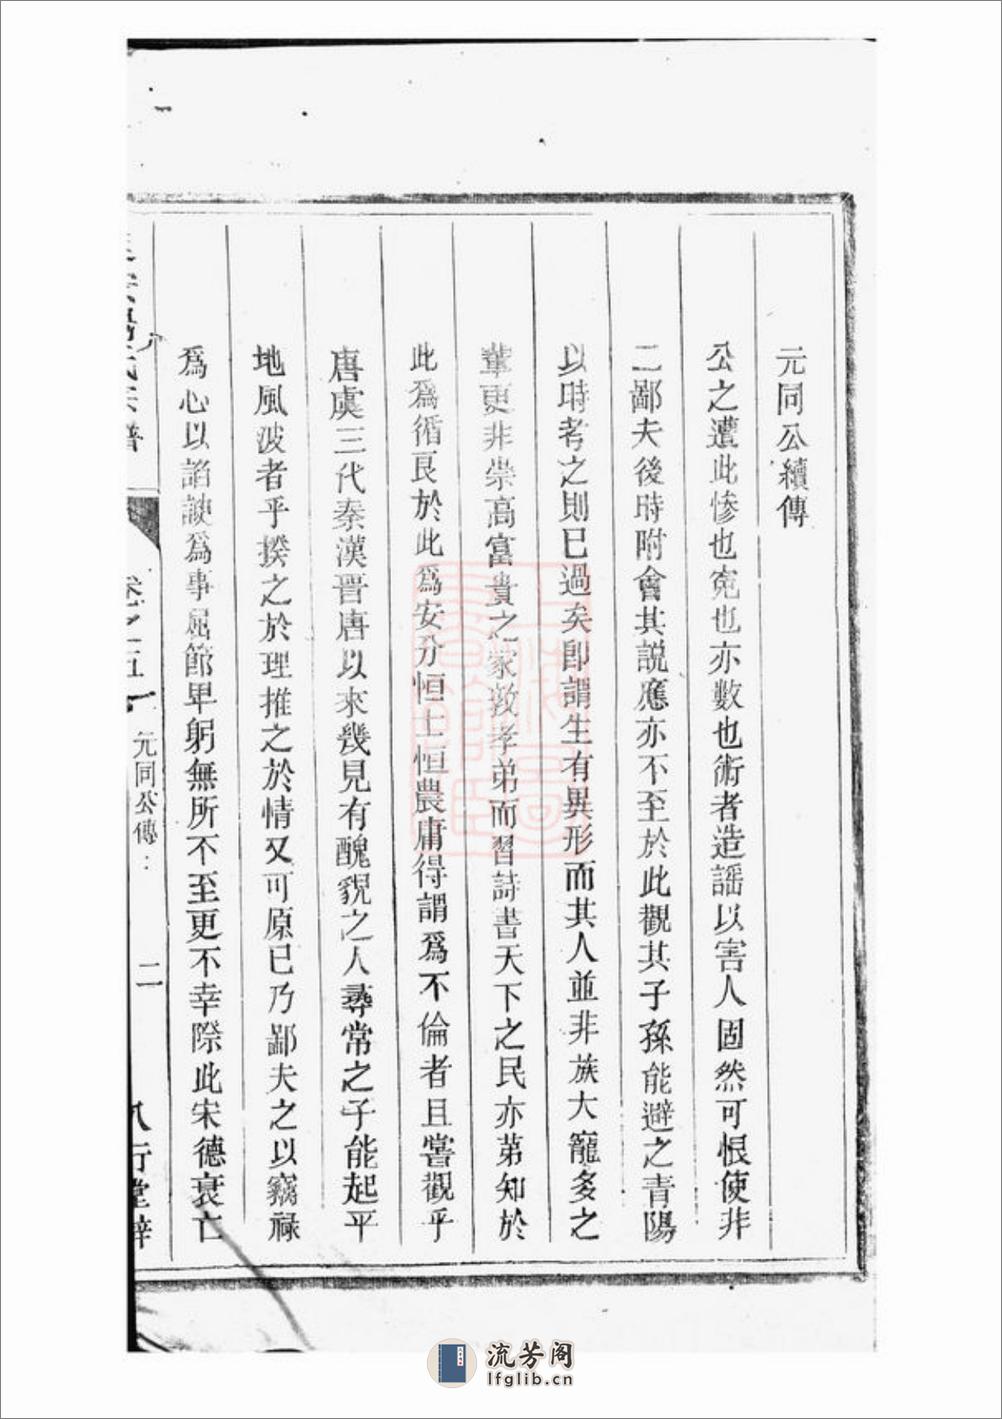 元同公續傳
公之遭此慘也寃也亦數也術者造謡以害人固然可恨使非
二鄙夫後時附會其説應亦不至於此觀其子孫能避之青陽
以時考之則已過矣即謂生有異形而其人並非族大寵多之
輩更非崇高富貴之家敦孝弟而習詩書天下之民亦苐知於
此爲循良於此爲安分恒士恒農庸得謂爲不倫者且嘗觀乎
唐虞三代秦漢晉唐以來幾見有醜貌之人尋常之子能起平
地風波者乎揆之於理推之於情又可原已乃鄙夫之以竊禄
爲心以諂諛爲事屈節卑躬無所不至更不幸際此宋德衰亡
氏宗譜
卷之五
元同公傳
二
八行堂梓
流芳阁
lfglib.cn